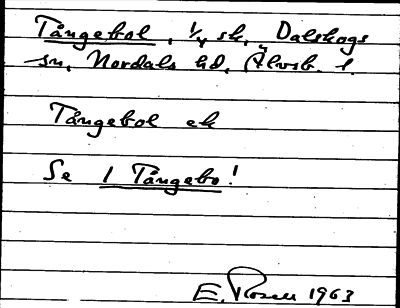 Tångebol, 1/4 sk, Dalskogs
sn, Nordals hd, Älvsb. l.
Tångebol ek
Se 1 Tångebo!
E. Rosell 1963